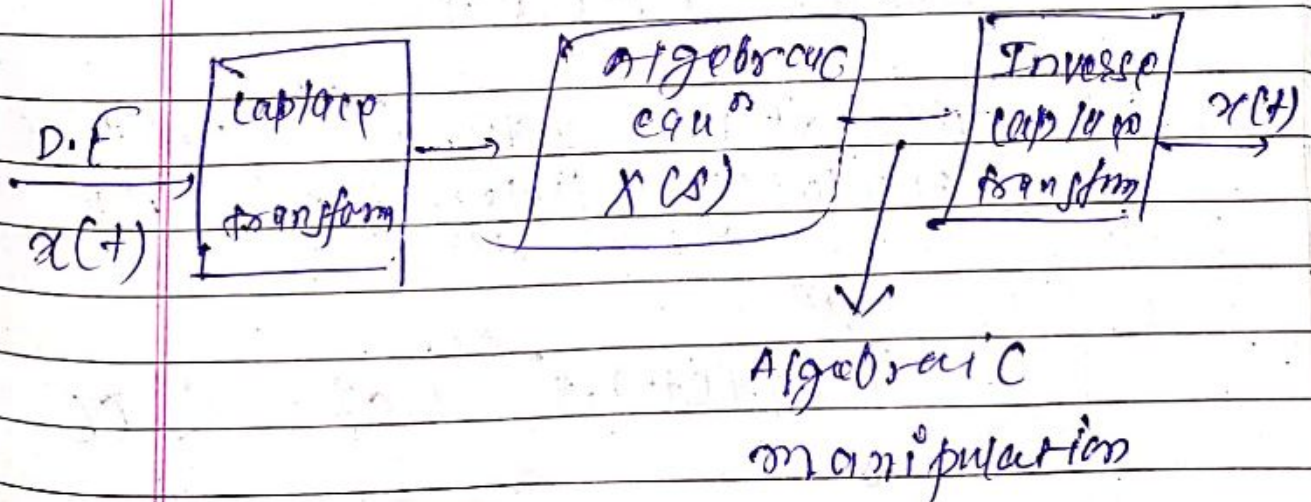 D.E
x(t)
Laplace
transform
Algebraic
equⁿ
X(s)
Inverse
Laplace
transform
x(t)
Algebraic
manipulation